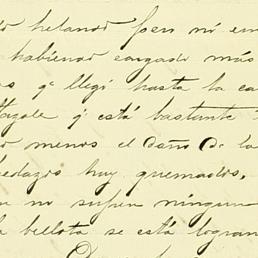 helando pero ni en
habiendo cargado más
qe llegó hasta la ca
qe está bastante
menos el daño de la
pedazos muy quemados,
no sufren ningun
la bellota se está logran